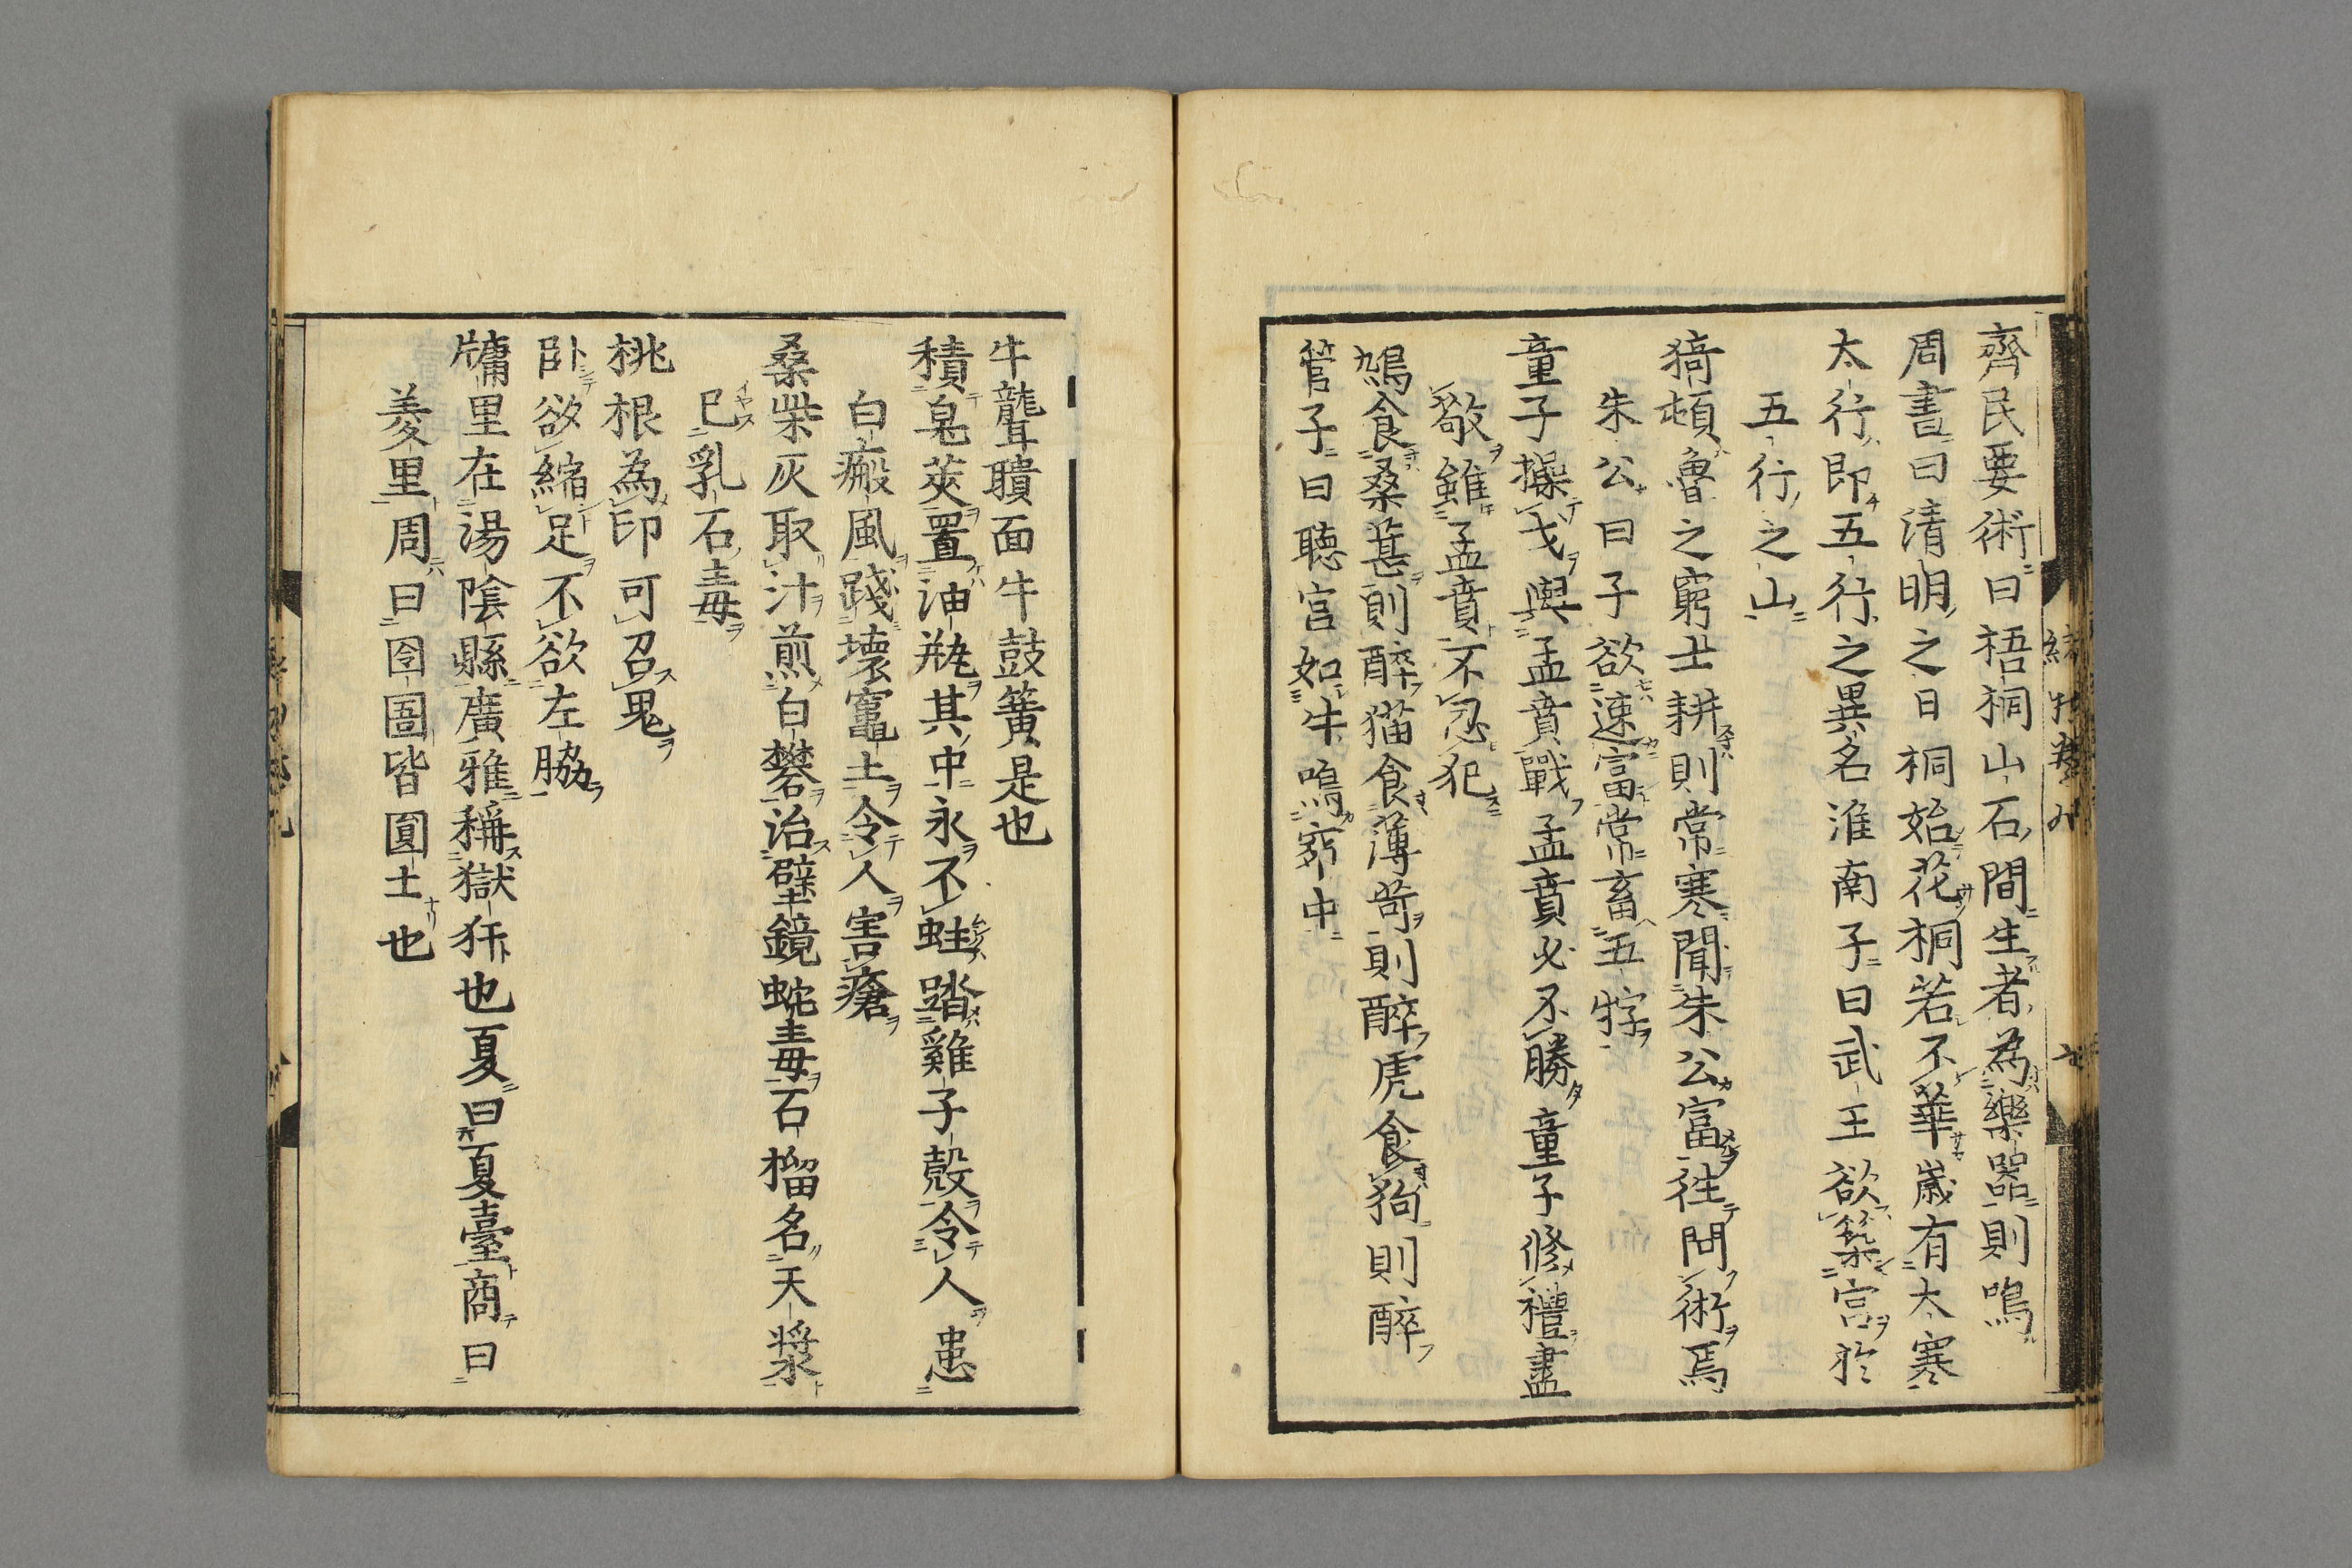 齊民要術曰梧桐山石間生者為樂器則鳴
周書曰清明之日桐始花桐若不華歲有大寒
太行即五行之異名淮南子曰武王欲築宮於
五行之山
猗頓魯之窮士耕則常寒聞朱公富往問術焉
朱公曰子欲速富常畜五牸
童子操戈與孟賁戰孟賁必不勝童子修禮盡
敬雖孟賁不忍犯
鳩食桑葚則醉猫食薄苛則醉虎食狗則醉
管子曰聴宮如牛鳴窌中
牛聾聵面牛鼓簧是也
積皂莢置油瓶其中永不蛀踏雞子殼令人患
白癜風踐壊竈土令人害瘡
桑柴灰取汁煎白礬治壁鏡蛇毒石榴名天漿
已乳石毒
桃根為印可召鬼
卧欲縮足不欲左脇
牗里在湯陰縣廣雅稱獄犴也夏曰夏臺商曰
羑里周曰囹圄皆圓土也